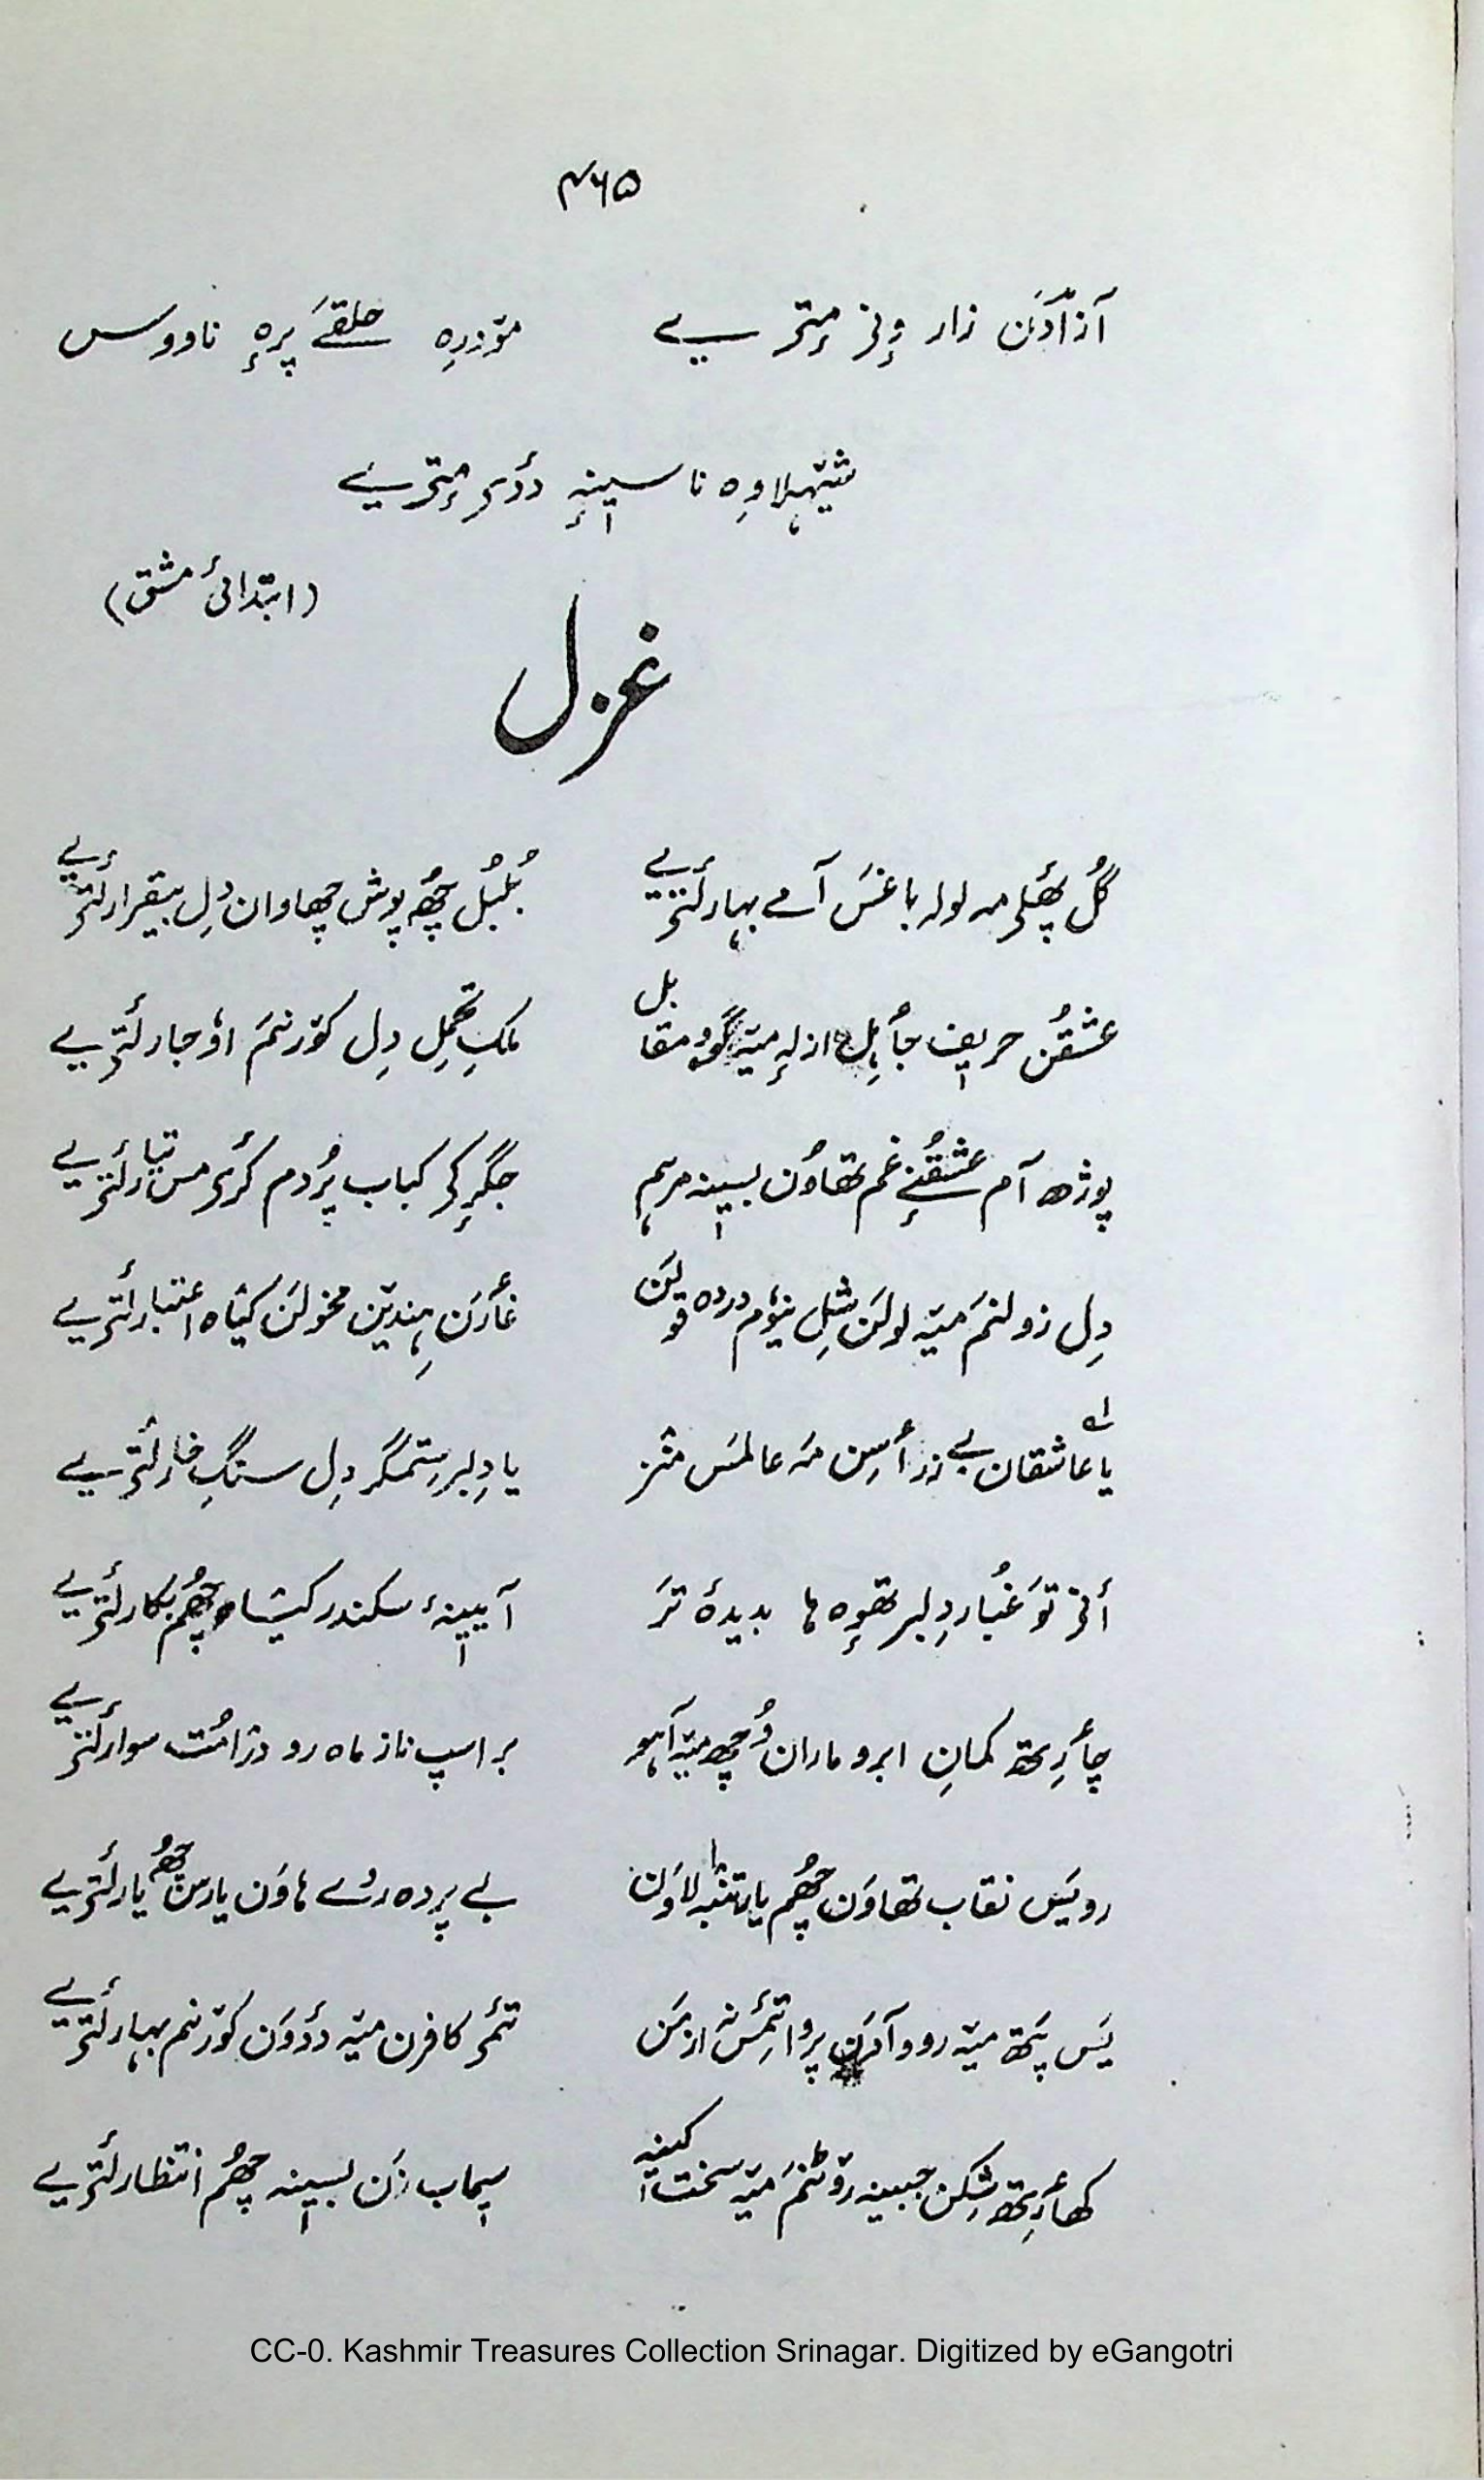 ۴۶۵
آزادَن زار وٕنۍ مٕتۍ یے مۆزرِہ حلقےَ پرٕہ نا ووس
شیٖہلاوِہ نا سینہٕ دٔدۍ مٕتۍ یے
(ابتدائی مشق)
غزل
گُل پھٔلۍ مہ لولہ باغس آمے بہار لٔتۍ یے بُلبُل چھُ پوش چھاوان دِل بیقرار لٔتۍ یے
عشقُن حریف جٲہِل ازلہٕ میۃ گوو مقابل ملکِ تحملِ دِل کۆرنم اوٚجار لٔتۍ یے
پوژھ آم عشقُنے غم تھاوُن بسینہ مرہم جگرٕکۍ کباب پُردم کٔرۍ مس تیار لٔتۍ یے
دِل زولنم میۃ لولن شلِ نیوٗم دردہ قولن غٲرَن ہِندین مخولن کیٛاہ اعتبار لٔتۍ یے
یا عاشقان بے زر أسِن مہ عالمس منٛز یا دِلبر ستمگر دِل سنگِ خار لٔتۍ یے
أنۍ توَ غُبار دِلبر تھوٕہ ہا بدیدۂ تر آیینۂ سکندر کیٛاہ چھُم بکار لٔتۍ یے
چٲرِتھ کمانِ ابرو ماران وُچھ میۃ آہو بر اسپ ناز ماہ رو دژامُت سوار لٔتۍ یے
رویَس نقاب تھاوَن چھُم یار تنبہ لاوَن بے پردہ روے ہاوَن یارس چھُم یار لٔتۍ یے
یَس پَتھ میۃ روو آدَن پروا تٔمِس نہ از من تٔمۍ کافرن میۃ دٔدوَن کۆرنم بہار لٔتۍ یے
کھٲرِتھ شِکن جبینہ رۆٹنم میۃ سخت کینہ سیماب زَن بسینہ چھُم انتظار لٔتۍ یے
CC-0. Kashmir Treasures Collection Srinagar. Digitized by eGangotri